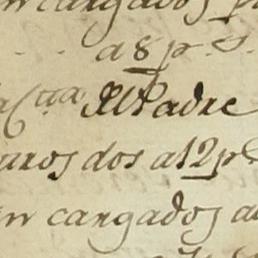 encargados p
a 8 p.s.
a Cta el Padre
uros dos a 12 p
en cargados a